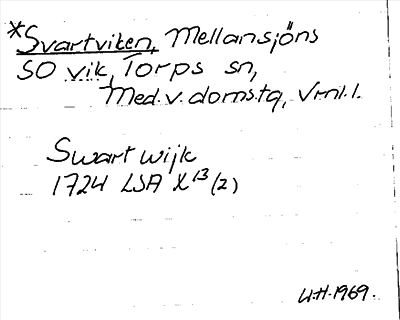 *Svartviken, Mellansjöns
SO vik, Torps sn,
Med. v. doms.tg, Vrnl. l.
Swart wijk
1724 LSA X13 (2)
U.H. 1969.